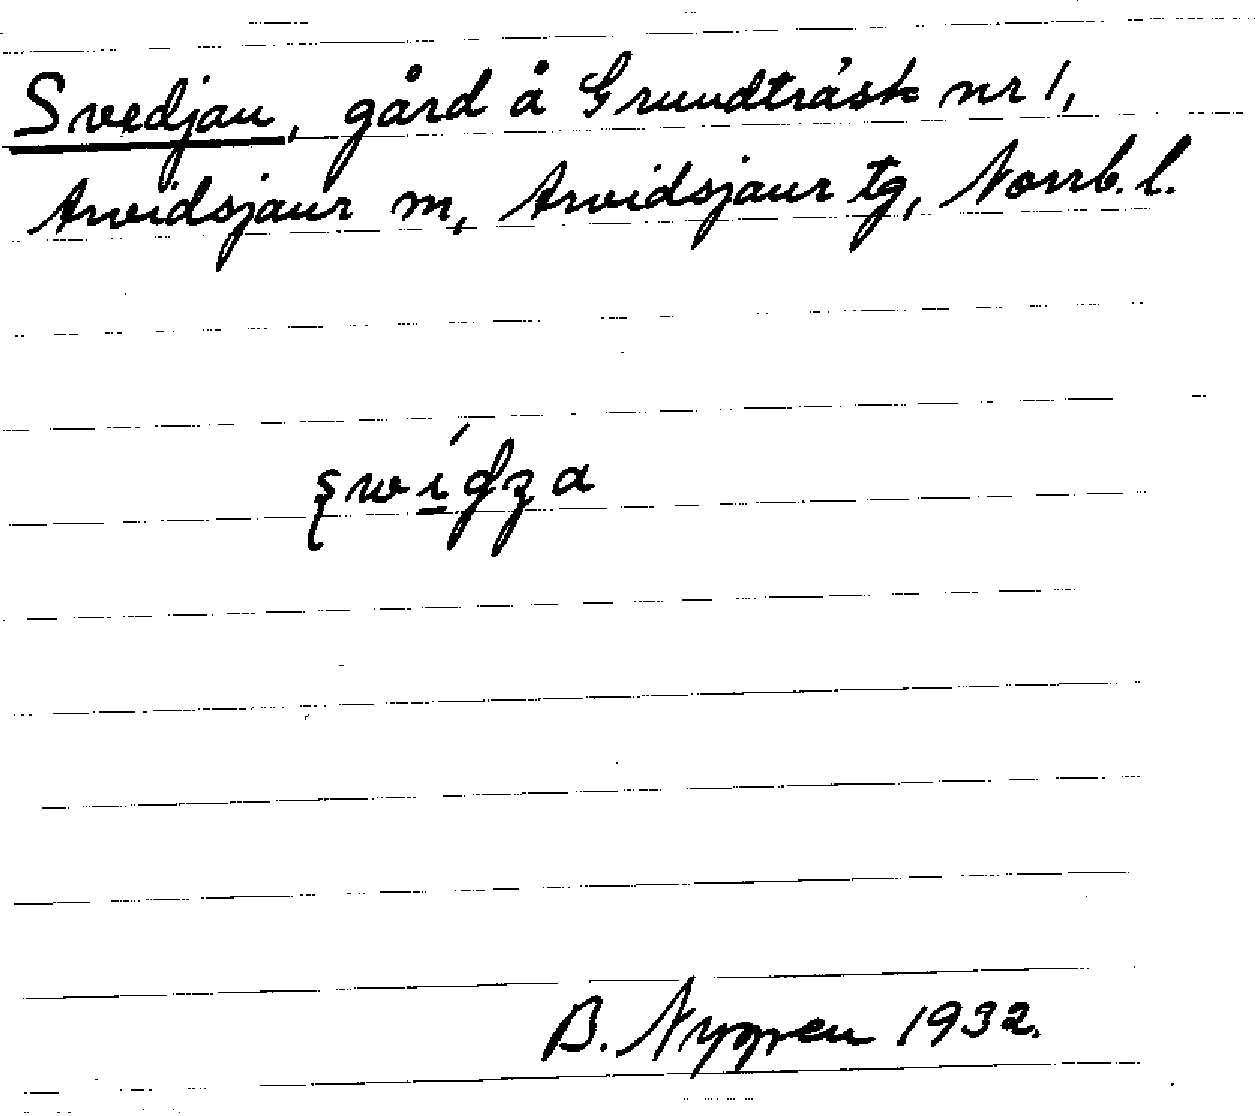 Svedjan, gård å Grundträsk nr 1,
Arvidsjaur m, Arvidsjaur tg, Norrb. l.
B. Nygren 1932.